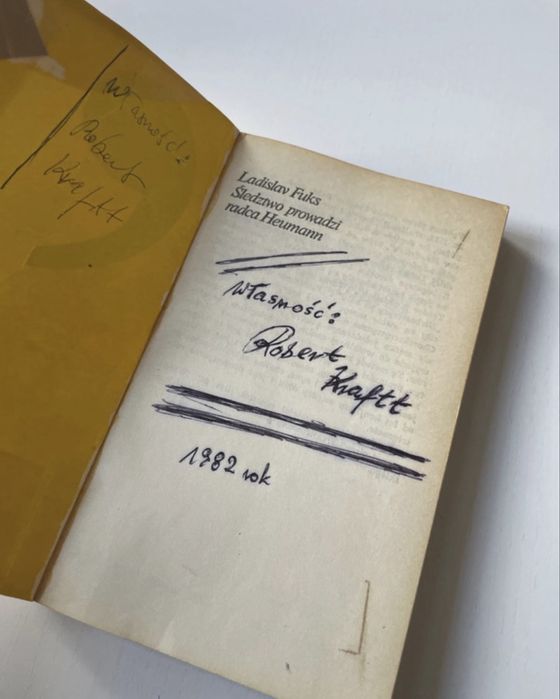 własność:
Robert
Kraftt
Ladislav Fuks
Śledztwo prowadzi
radca Heumann
własność:
Robert
Kraftt
1982 rok